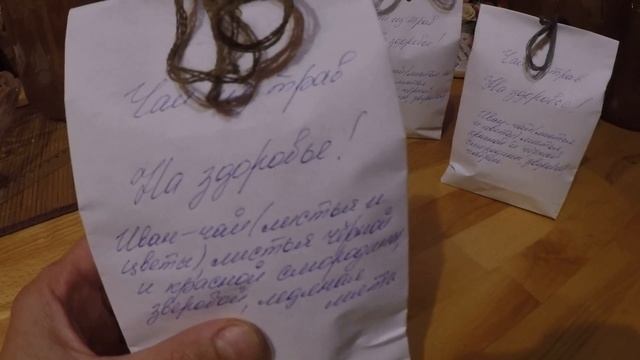 Чай из трав
На здоровье!
Иван-чай (листья и
цветы) листья чёрной
и красной смородины,
зверобой, ледяная
мята
из трав
здоровье!
Чай из трав
На здоровье!
Иван-чай (листья
и цветы) листья